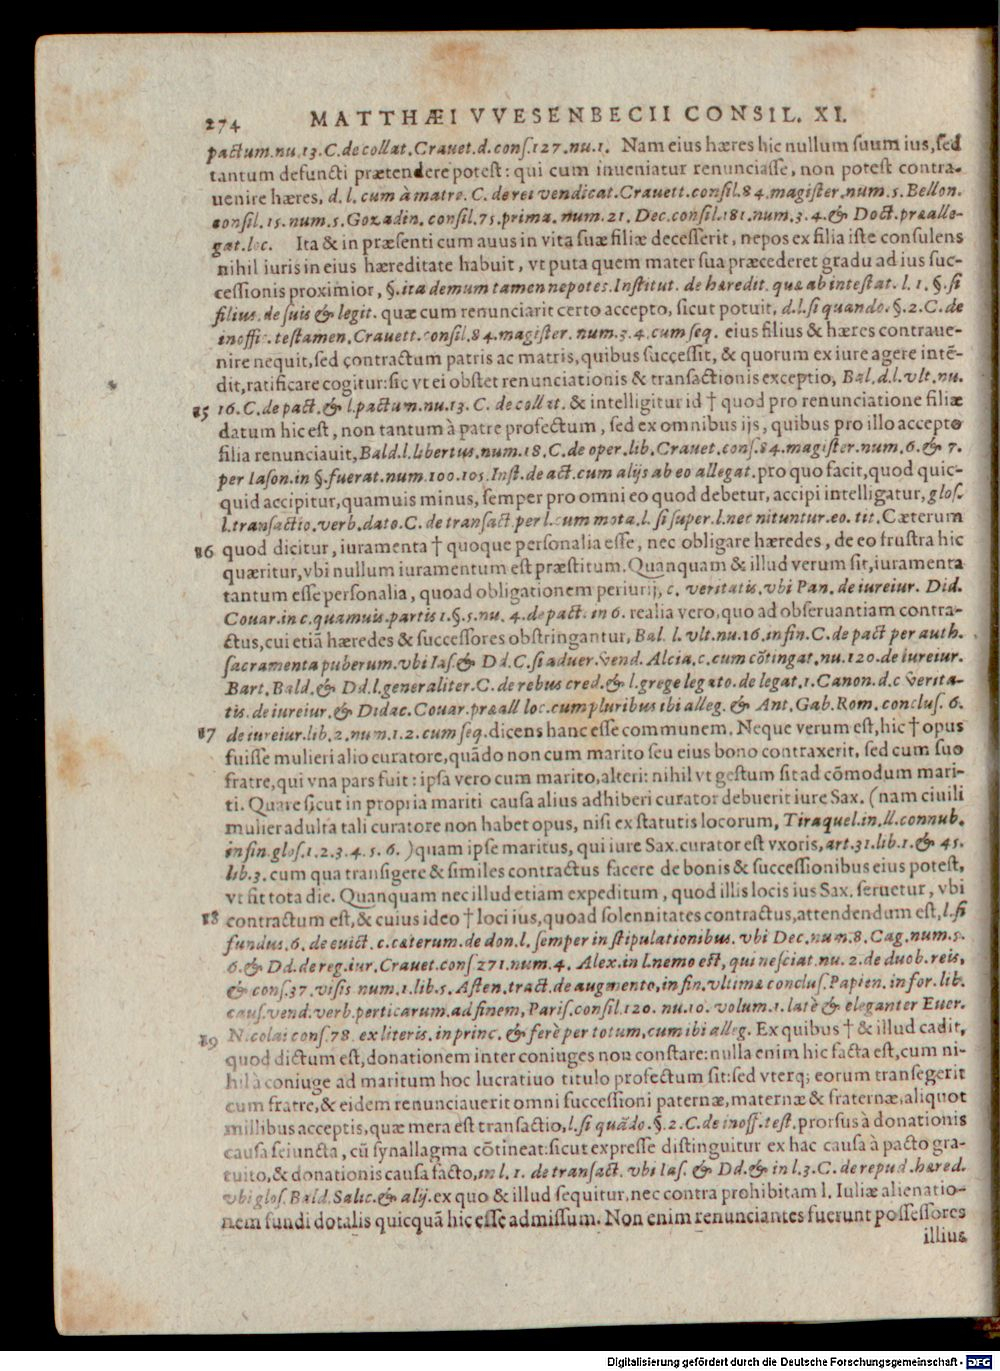 274 MATTHÆI VVESENBECII CONSIL. XI.
pactum.nu.13.C.de collat.Crauet.d.cons.127.nu.1. Nam eius hæres hic nullum suum ius,sed
tantum defuncti prætendere potest: qui cum inueniatur renunciasse, non potest contra-
uenire hæres, d. l. cum à matre. C. de rei vendicat.Crauett.consil.84.magister.num.5.Bellon.
consil.15.num.5.Gozadin. consil.75.prima. num.21. Dec.consil.181.num.3.4.& Doct.præallo-
gat.loc. Ita & in præsenti cum auus in vita suæ filiæ decesserit, nepos ex filia iste consulens
nihil iuris in eius hæreditate habuit, vt puta quem mater sua præcederet gradu ad ius suc-
cessionis proximior, §.ita demum tamen nepotes.Institut. de hæredit. quæ ab intestat. l. 1. §.si
filius.de suis & legit. quæ cum renunciarit certo accepto, sicut potuit, d.l.si quando.§.2.C.de
inoffic.testamen,Crauett.consil.84.magister.num.3.4.cum seq. eius filius & hæres contraue-
nire nequit,sed contractum patris ac matris,quibus successit, & quorum ex iure agere intẽ-
dit,ratificare cogitur:sic vt ei obstet renunciationis & transactionis exceptio, Bal.d.l.vlt.nu.
15 16.C.de pact.& l.pactum.nu.13.C. de collat. & intelligitur id † quod pro renunciatione filiæ
datum hic est, non tantum à patre profectum, sed ex omnibus ijs, quibus pro illo accepto
filia renunciauit,Bald.l.libertus,num.18.C.de oper.lib.Crauet.cons.84.magister.num.6.& 7.
per Iason.in §.fuerat.num.100.105.Inst.de act.cum alijs ab eo allegat.pro quo facit,quod quic-
quid accipitur,quamuis minus, semper pro omni eo quod debetur, accipi intelligatur, glos.
l.transactio.verb.dato.C. de transact.per l.cum mota.l. si super.l.nec nituntur.eo.tit.Cæterum
16 quod dicitur, iuramenta † quoque personalia esse, nec obligare hæredes, de eo frustra hic
quæritur,vbi nullum iuramentum est præstitum.Quanquam & illud verum sit,iuramenta
tantum esse personalia, quoad obligationem periurij, c. veritatis.vbi Pan. de iureiur. Did.
Couar.in c.quamuis.partis 1.§.5.nu. 4.de pact. in 6. realia vero,quo ad obseruantiam contra-
ctus,cui etiã hæredes & successores obstringantur, Bal. l. vlt.nu.16.in fin.C.de pact per auth.
sacramenta puberum.vbi Ias.& Dd.C.si aduer.vend. Alcia.c.cum cõtingat.nu.120.de iureiur.
Bart.Bald.& Dd.l.generaliter.C.de rebus cred.& l.grege legato.de legat.1.Canon.d.c verita-
tis.de iureiur.& Didac.Couar.præall loc.cum pluribus ibi alleg. & Ant.Gab.Rom. conclus. 6.
17 de iureiur.lib.2.num.1.2.cum seq.dicens hanc esse communem. Neque verum est,hic † opus
fuisse mulieri alio curatore,quãdo non cum marito seu eius bono contraxerit, sed cum suo
fratre,qui vna pars fuit: ipsa vero cum marito,alteri: nihil vt gestum sit ad cõmodum mari-
ti. Quare sicut in propria mariti causa alius adhiberi curator debuerit iure Sax. (nam ciuili
mulier adulta tali curatore non habet opus, nisi ex statutis locorum, Tiraquel.in.ll.connub.
in fin.glos.1.2.3.4.5.6. )quam ipse maritus, qui iure Sax.curator est vxoris, art.31.lib.1.& 45.
lib.3. cum qua transigere & similes contractus facere de bonis & successionibus eius potest,
vt fit tota die. Quanquam nec illud etiam expeditum, quod illis locis ius Sax. seruetur, vbi
18 contractum est,& cuius ideo † loci ius,quoad solennitates contractus,attendendum est,l.si
fundus.6. de euict. c.cæterum.de don.l. semper in stipulationibus. vbi Dec.num.8.Cag.num.5.
6.& Dd.de reg.iur.Crauet.cons 271.num.4. Alex.in l.nemo est, qui nesciat.nu. 2.de duob.reis,
& cons.37.visis num.1.lib.5. Asten.tract.de augmento,in fin.vltima conclus.Papien.in for.lib.
caus.vend.verb.perticarum.ad finem,Paris.consil.120. nu.10. volum.1.latè & eleganter Euer.
19 N.colai cons.78. ex literis.in princ. & ferè per totum,cum ibi alleg. Ex quibus † & illud cadit,
quod dictum est,donationem inter coniuges non constare: nulla enim hic facta est,cum ni-
hil à coniuge ad maritum hoc lucratiuo titulo profectum sit:sed vterq; eorum transegerit
cum fratre,& eidem renunciauerit omni successioni paternæ,maternæ & fraternæ,aliquot
millibus acceptis,quæ mera est transactio,l.si quãdo.§.2.C.de inoff.test.prorsus à donationis
causa seiuncta, cũ synallagma cõtineat:sicut expresse distinguitur ex hac causa à pacto gra-
tuito,& donationis causa facto,in l. 1. de transact. vbi Ias. & Dd.& in l.3.C.de repud.hæred.
vbi glos.Bald.Salic.& alij.ex quo & illud sequitur,nec contra prohibitam l. Iuliæ alienatio-
nem fundi dotalis quicquã hic esse admissum. Non enim renunciantes fuerunt possessores
illius
Digitalisierung gefördert durch die Deutsche Forschungsgemeinschaft - DFG